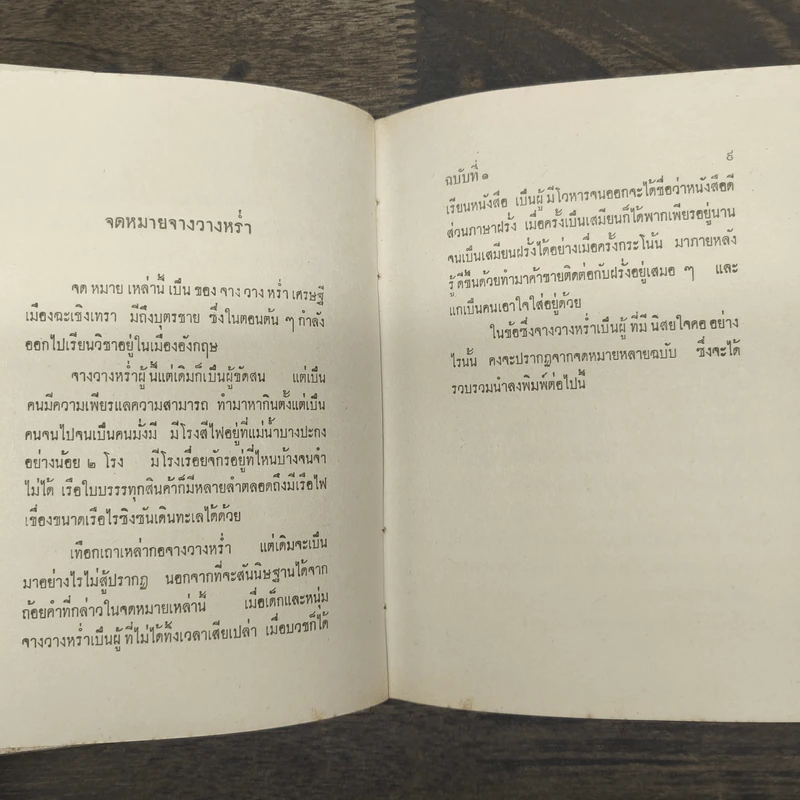 จดหมายจางวางหร่ำ
จด หมาย เหล่านี้ เป็น ของ จาง วาง หร่ำ เศรษฐี
เมืองฉะเชิงเทรา มีถึงบุตรชาย ซึ่งในตอนต้น ๆ กำลัง
ออกไปเรียนวิชาอยู่ในเมืองอังกฤษ
จางวางหร่ำผู้นี้แต่เดิมก็เป็นผู้ขัดสน แต่เป็น
คนมีความเพียรแลความสามารถ ทำมาหากินตั้งแต่เป็น
คนจนไปจนเป็นคนมั่งมี มีโรงสีไฟอยู่ที่แม่น้ำบางปะกง
อย่างน้อย ๒ โรง มีโรงเรื่อยจักรอยู่ที่ไหนบ้างจนจำ
ไม่ได้ เรือใบบรรทุกสินค้าก็มีหลายลำตลอดถึงมีเรือไฟ
เขื่องขนาดเรือไรซิงซันเดินทะเลได้ด้วย
เทือกเถาเหล่ากอจางวางหร่ำ แต่เดิมจะเป็น
มาอย่างไรไม่สู้ปรากฏ นอกจากที่จะสันนิษฐานได้จาก
ถ้อยคำที่กล่าวในจดหมายเหล่านี้ เมื่อเด็กและหนุ่ม
จางวางหร่ำเป็นผู้ที่ไม่ได้ทั้งเวลาเสียเปล่า เมื่อบวชก็ได้
ฉบับที่ ๑ ๙
เรียนหนังสือ เป็นผู้มีโวหารจนออกจะได้ชื่อว่าหนังสือดี
ส่วนภาษาฝรั่ง เมื่อครั้งเป็นเสมียนก็ได้พากเพียรอยู่นาน
จนเป็นเสมียนฝรั่งได้อย่างเมื่อครั้งกระโน้น มาภายหลัง
รู้ดีขึ้นด้วยทำมาค้าขายติดต่อกับฝรั่งอยู่เสมอ ๆ และ
แกเป็นคนเอาใจใส่อยู่ด้วย
ในข้อซึ่งจางวางหร่ำเป็นผู้ ที่มี นิสยใจคอ อย่าง
ไรนั้น คงจะปรากฏจากจดหมายหลายฉบับ ซึ่งจะได้
รวบรวมนำลงพิมพ์ต่อไปนี้